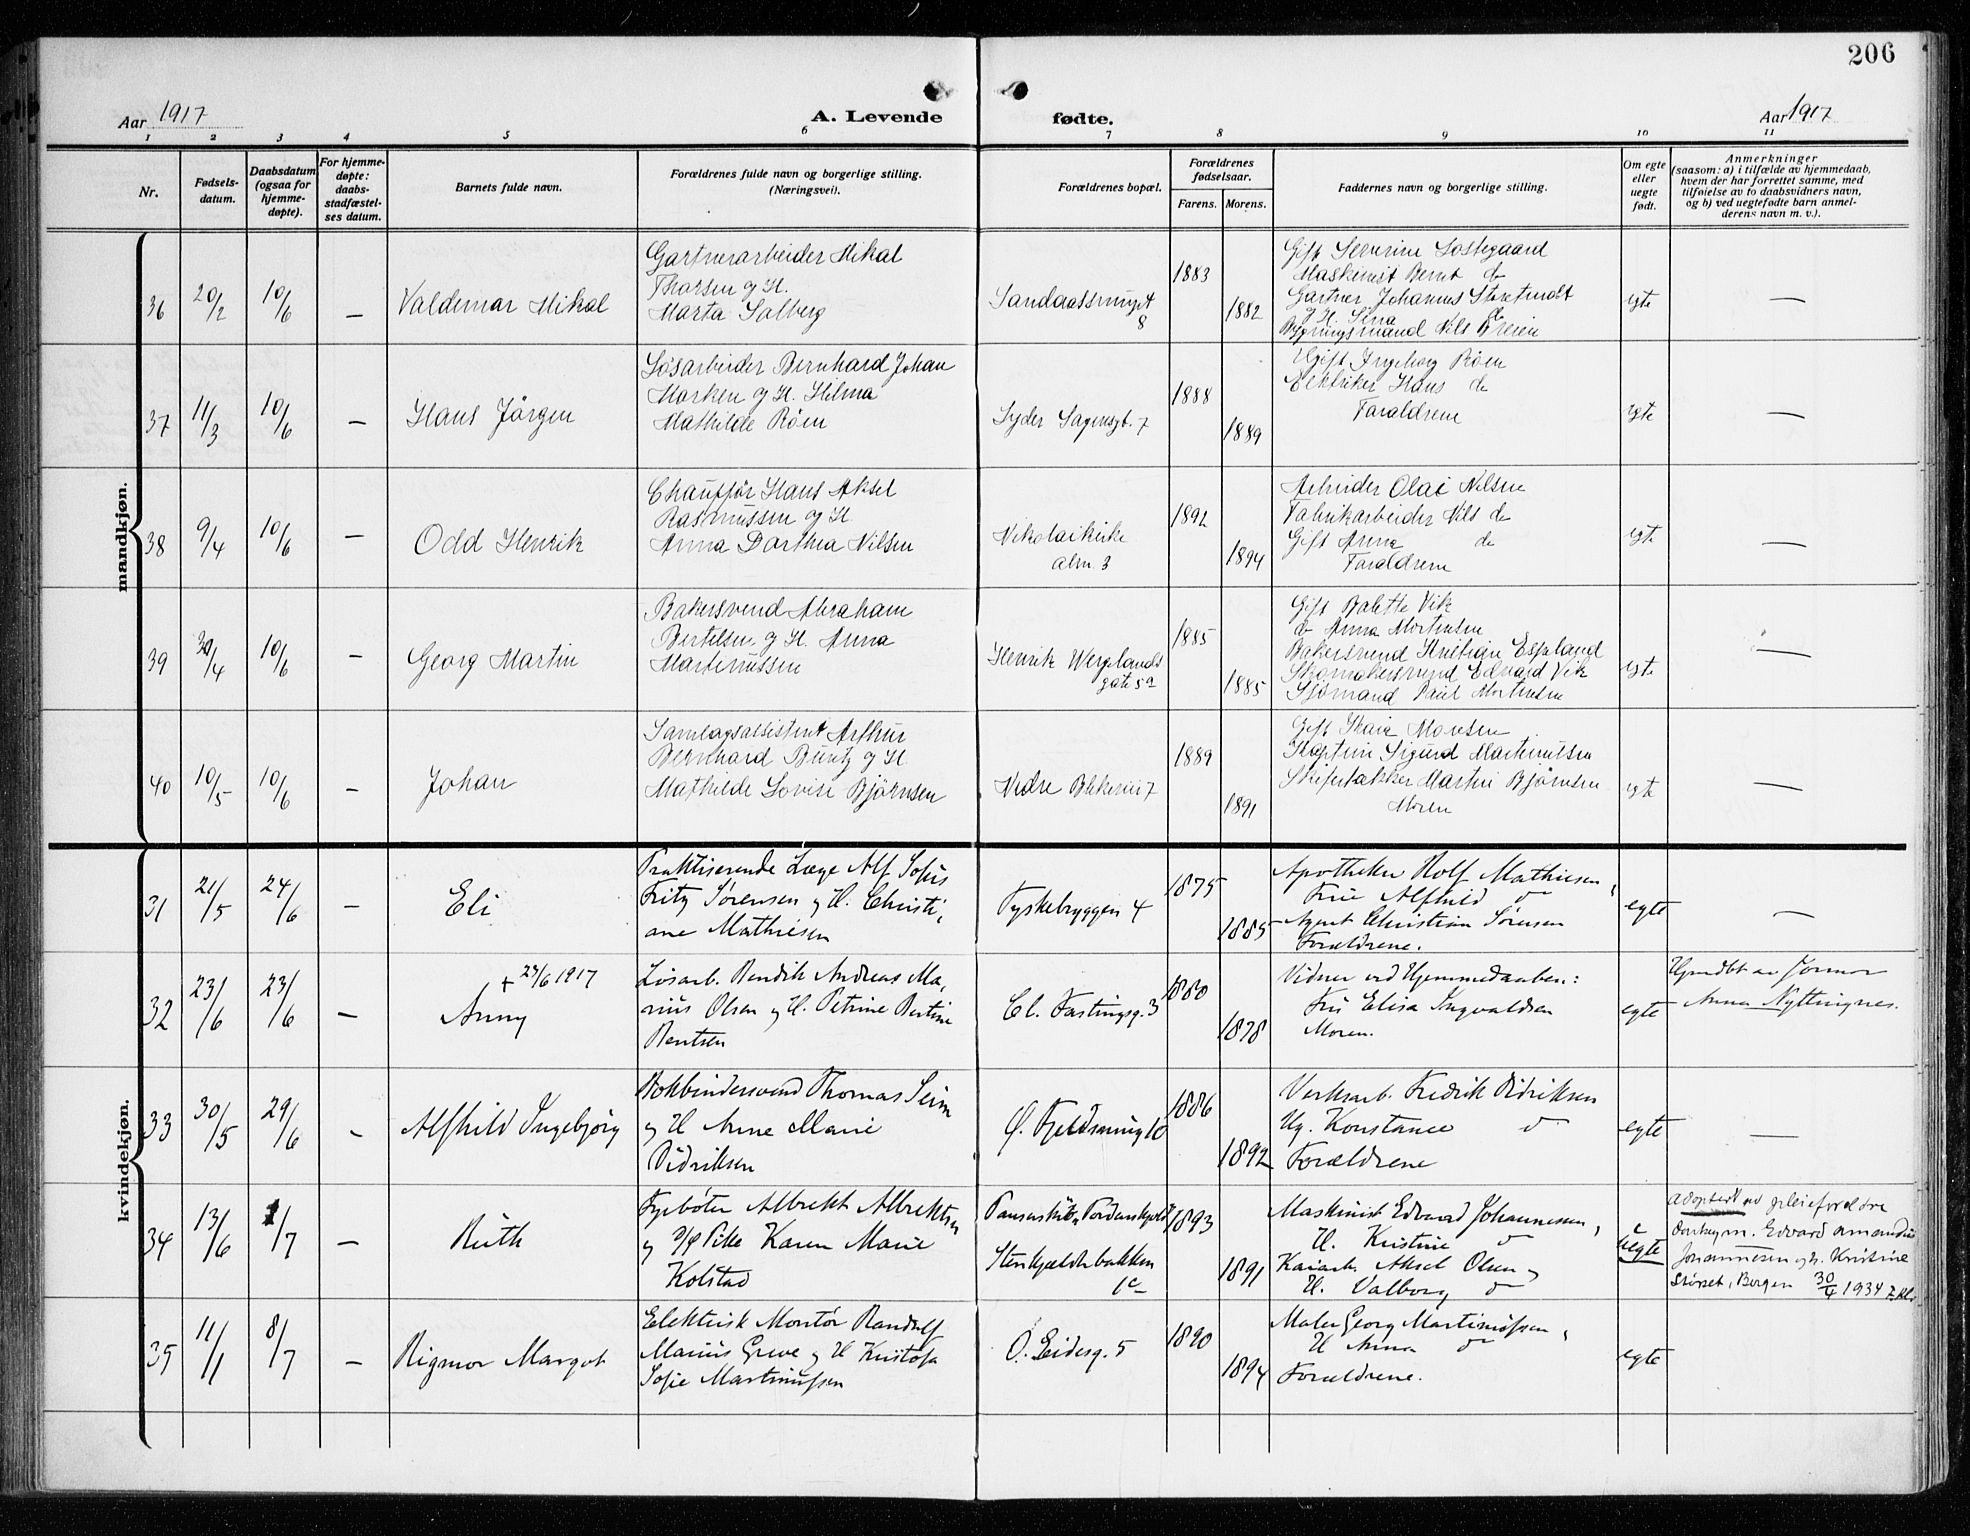 206
Aar 1917
A. Levende
fødte.
Aar 1917
1 2 3 4 5 6 7 8 9 10 11
Nr.
Fødsels-
datum.
Daabsdatum
(ogsaa for
hjemme-
døpte).
For hjemme-
døpte:
daabs-
stadfæstel-
ses datum.
Barnets fulde navn.
Forældrenes fulde navn og borgerlige stilling.
(Næringsvei).
Forældrenes bopæl.
Forældrenes
fødselsaar.
Farens. Morens.
Faddernes navn og borgerlige stilling.
Om egte
eller
uegte
født.
Anmerkninger
(saasom: a) i tilfælde av hjemmedaab,
hvem der har forrettet samme, med
tilføielse av to daabsvidners navn,
og b) ved uegtefødte barn anmel-
derens navn m. v.).
mandkjøn.
36 20/2 10/6 — Valdemar Mikal
Gartnerarbeider Mikal
Thorsen og H.
Marta Solberg
8
1883
1882
Gift Severine Sostegaard
Maskinist Bernt do
Gartner Johannes
og H. Sina do
Bygningsmand Nils Breien
egte
—
37 11/3 10/6 — Hans Jørgen
Løsarbeider Bernhard Johan
Marken og H. Hilma
Mathilde Røen
Syder Sagensgt. 7
1888
1889
Ugift Ingeborg Røen
Elektriker Hans do
Forældrene
egte
—
38 9/4 10/6 — Odd Henrik
Chauffør Hans Aksel
Rasmussen og H.
Anna Dorthea Nilsen
Nikolaikirke
alm. 3
1892
1894
Arbeider Olai Nilsen
Fabrikarbeider Nils do
Gift Anna do
Forældrene
egte
—
39 30/4 10/6 — Georg Martin
Bakersvend Abraham
Bertelsen og H. Anna
Martinussen
Henrik Wergelands
gate 5a
1885
1885
Gift Balette Vik
do Anna Mortensen
Bakersvend Kristian Espeland
Skomakersvend Edvard Vik
Sjømand Paul Mortensen
egte
—
40 10/5 10/6 — Johan
Samlagsassistent Arthur
Bernhard Buntz og H.
Mathilde Lovise Bjørnsen
Nedre Blekevei 7
1889
1891
Gift Kaia Monsen
Kaptein Sigurd Martinussen
Skipstakker Martin Bjørnsen
Moren
egte
—
kvindekjøn.
31 21/5 24/6 — Eli
Praktiserende Læge Alf Sofus
Fritz Sørensen og H. Christi-
ane Mathiesen
Tyskebryggen 4
1875
1885
Apotheker Rolf Mathiesen,
Frue Alfhild do
Agent Christian Sørensen
Forældrene.
egte
—
32 23/6 23/6 — Anny
+ 24/6 1917
Løsarb. Bendik Andreas Ma-
rius Olsen og H. Petrine Bertine
Bentsen
Cl. Fastingsg. 3
1880
1878
Vidner ved Hjemmedaaben:
Fru Elisa Ingvaldsen
Moren.
egte
Hjmdbt av Jormor
Anna Nyttingnes.
33 30/5 29/6 — Alfhild Ingebjørg
Bokbindersvend Thomas Seim
og H Anne Marie
Didriksen
Ø. Fjeldsmug 10
1886
1892
Verksarb. Fredrik Didriksen
Ug. Konstance do
Forældrene
egte
—
34 13/6 1/7 — Ruth
Fyrbøter Albrekt Albrektsen
og Ug Pike Karen Marie
Kolstad
Panserskib Tordenskjold
Stenkjelderbakken
1c
1893
1891
Maskinist Edvard Johannesen,
H. Kristine do
Kaiarb. Aksel Olsen og
H. Valborg do
uegte
Adoptert av pleieforeldre
Donkeym. Edvard Amandus
Johannesen og h. Kristine
Størset, Bergen 30/4 1934
35 11/1 8/7 — Rigmor Margot
Elektrisk Montør Randulf
Marius Greve og H Kristofa
Sofie Martinussen
Ø. Eidesg. 5
1890
1894
Maler Georg Martinussen,
H Anna do
Forældrene.
egte